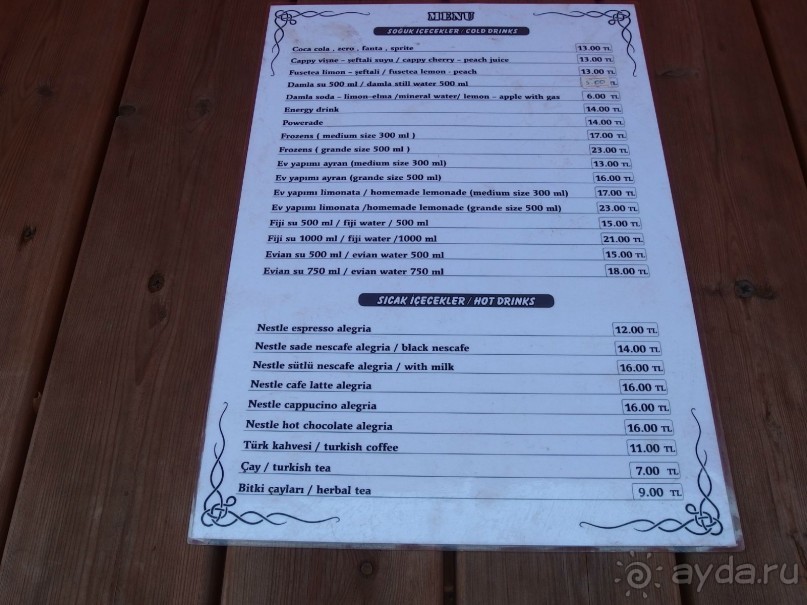 MENU
SOĞUK İÇECEKLER / COLD DRINKS
Coca cola , zero , fanta , sprite 13.00 TL
Cappy vişne – şeftali suyu / cappy cherry – peach juice 13.00 TL
Fusetea limon – şeftali / fusetea lemon - peach 13.00 TL
Damla su 500 ml / damla still water 500 ml TL
Damla soda – limon-elma /mineral water/ lemon – apple with gas 6.00 TL
Energy drink 14.00 TL
Powerade 14.00 TL
Frozens ( medium size 300 ml ) 17.00 TL
Frozens ( grande size 500 ml ) 23.00 TL
Ev yapımı ayran (medium size 300 ml) 13.00 TL
Ev yapımı ayran (grande size 500 ml) 16.00 TL
Ev yapımı limonata / homemade lemonade (medium size 300 ml) 17.00 TL
Ev yapımı limonata /homemade lemonade (grande size 500 ml) 23.00 TL
Fiji su 500 ml / fiji water / 500 ml 15.00 TL
Fiji su 1000 ml / fiji water /1000 ml 21.00 TL
Evian su 500 ml / evian water 500 ml 15.00 TL
Evian su 750 ml / evian water 750 ml 18.00 TL
SICAK İÇECEKLER / HOT DRINKS
Nestle espresso alegria 12.00 TL
Nestle sade nescafe alegria / black nescafe 14.00 TL
Nestle sütlü nescafe alegria / with milk 16.00 TL
Nestle cafe latte alegria 16.00 TL
Nestle cappucino alegria 16.00 TL
Nestle hot chocolate alegria 16.00 TL
Türk kahvesi / turkish coffee 11.00 TL
Çay / turkish tea 7.00 TL
Bitki çayları / herbal tea 9.00 TL
ayda.ru